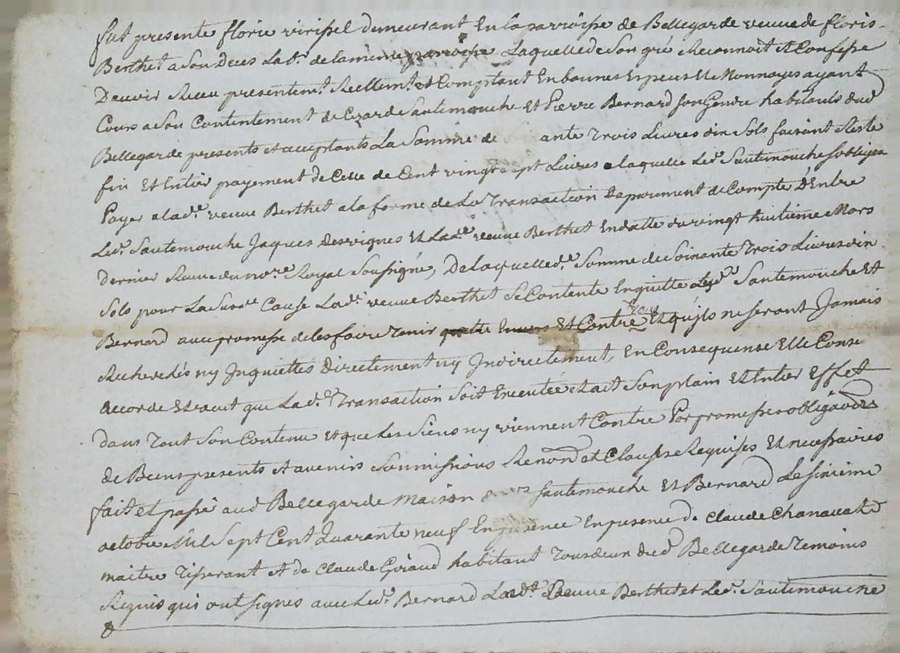 fut presente florie viripel demeurant En la parroisse de Bellegarde veuve de floris
Berthet a son deces Lab.r de la mesme parroisse Laquelle de Son gre Reconnoit et Confesse
D'avoir Receu presentem.t Reellem.t et Comptant En bonnes Especes et Monnoyes ayant
Cours a Son Contentement de Sautemouche Et Pierre Bernard Son Gendre habitants dud
Bellegarde presents et acceptants La Somme de ante Trois Livres dix Sols faisant Reste
fin Et Entier payement de Celle de Cent vingt sept Livres a laquelle Led. Sautemouche S'obligea
Payer a lad.e veuve Berthet a la forme de La Transaction de Compte D'Entre
Led. Sautemouche Jaques Desvignes Et Lad.e veuve Berthet En datte du vingt huitieme Mars
Dernier Receue du no.re Royal Soussigné, De laquelle d.e Somme de Soixante Trois Livres dix
Sols pour La Sus d.e Cause Lad.e veuve Berthet Se Contente En quitte Lesd. Sautemouche Et
Bernard avec promesse de les faire Tenir quitte Envers Et Contre Tous Et qu'ils ne seront Jamais
Recherchés ny Inquiettés Directement ny Indirectement, En Consequense Elle Conse
accorde Et veut que Lad.e Transaction Soit Executée et ait Son plain Et Entier Effet
dans Tout Son Contenu Et que Les Siens ny viennent Contre Par promesse obligaons
de Biens presents et avenirs Soumissions Renon.ons et Clauses Requises Et necessaires
fait et passé aud Bellegarde Maison Sautemouche Et Bernard Le sixieme
octobre Mil Sept Cent Quarante neuf En presence de Claude Chanavat
maitre Tisserant et de Claude Giraud habitant Tous deux dud Bellegarde Temoins
Requis qui ont signés avec Led. Bernard Lad.e veuve Berthet et Led. Sautemouche